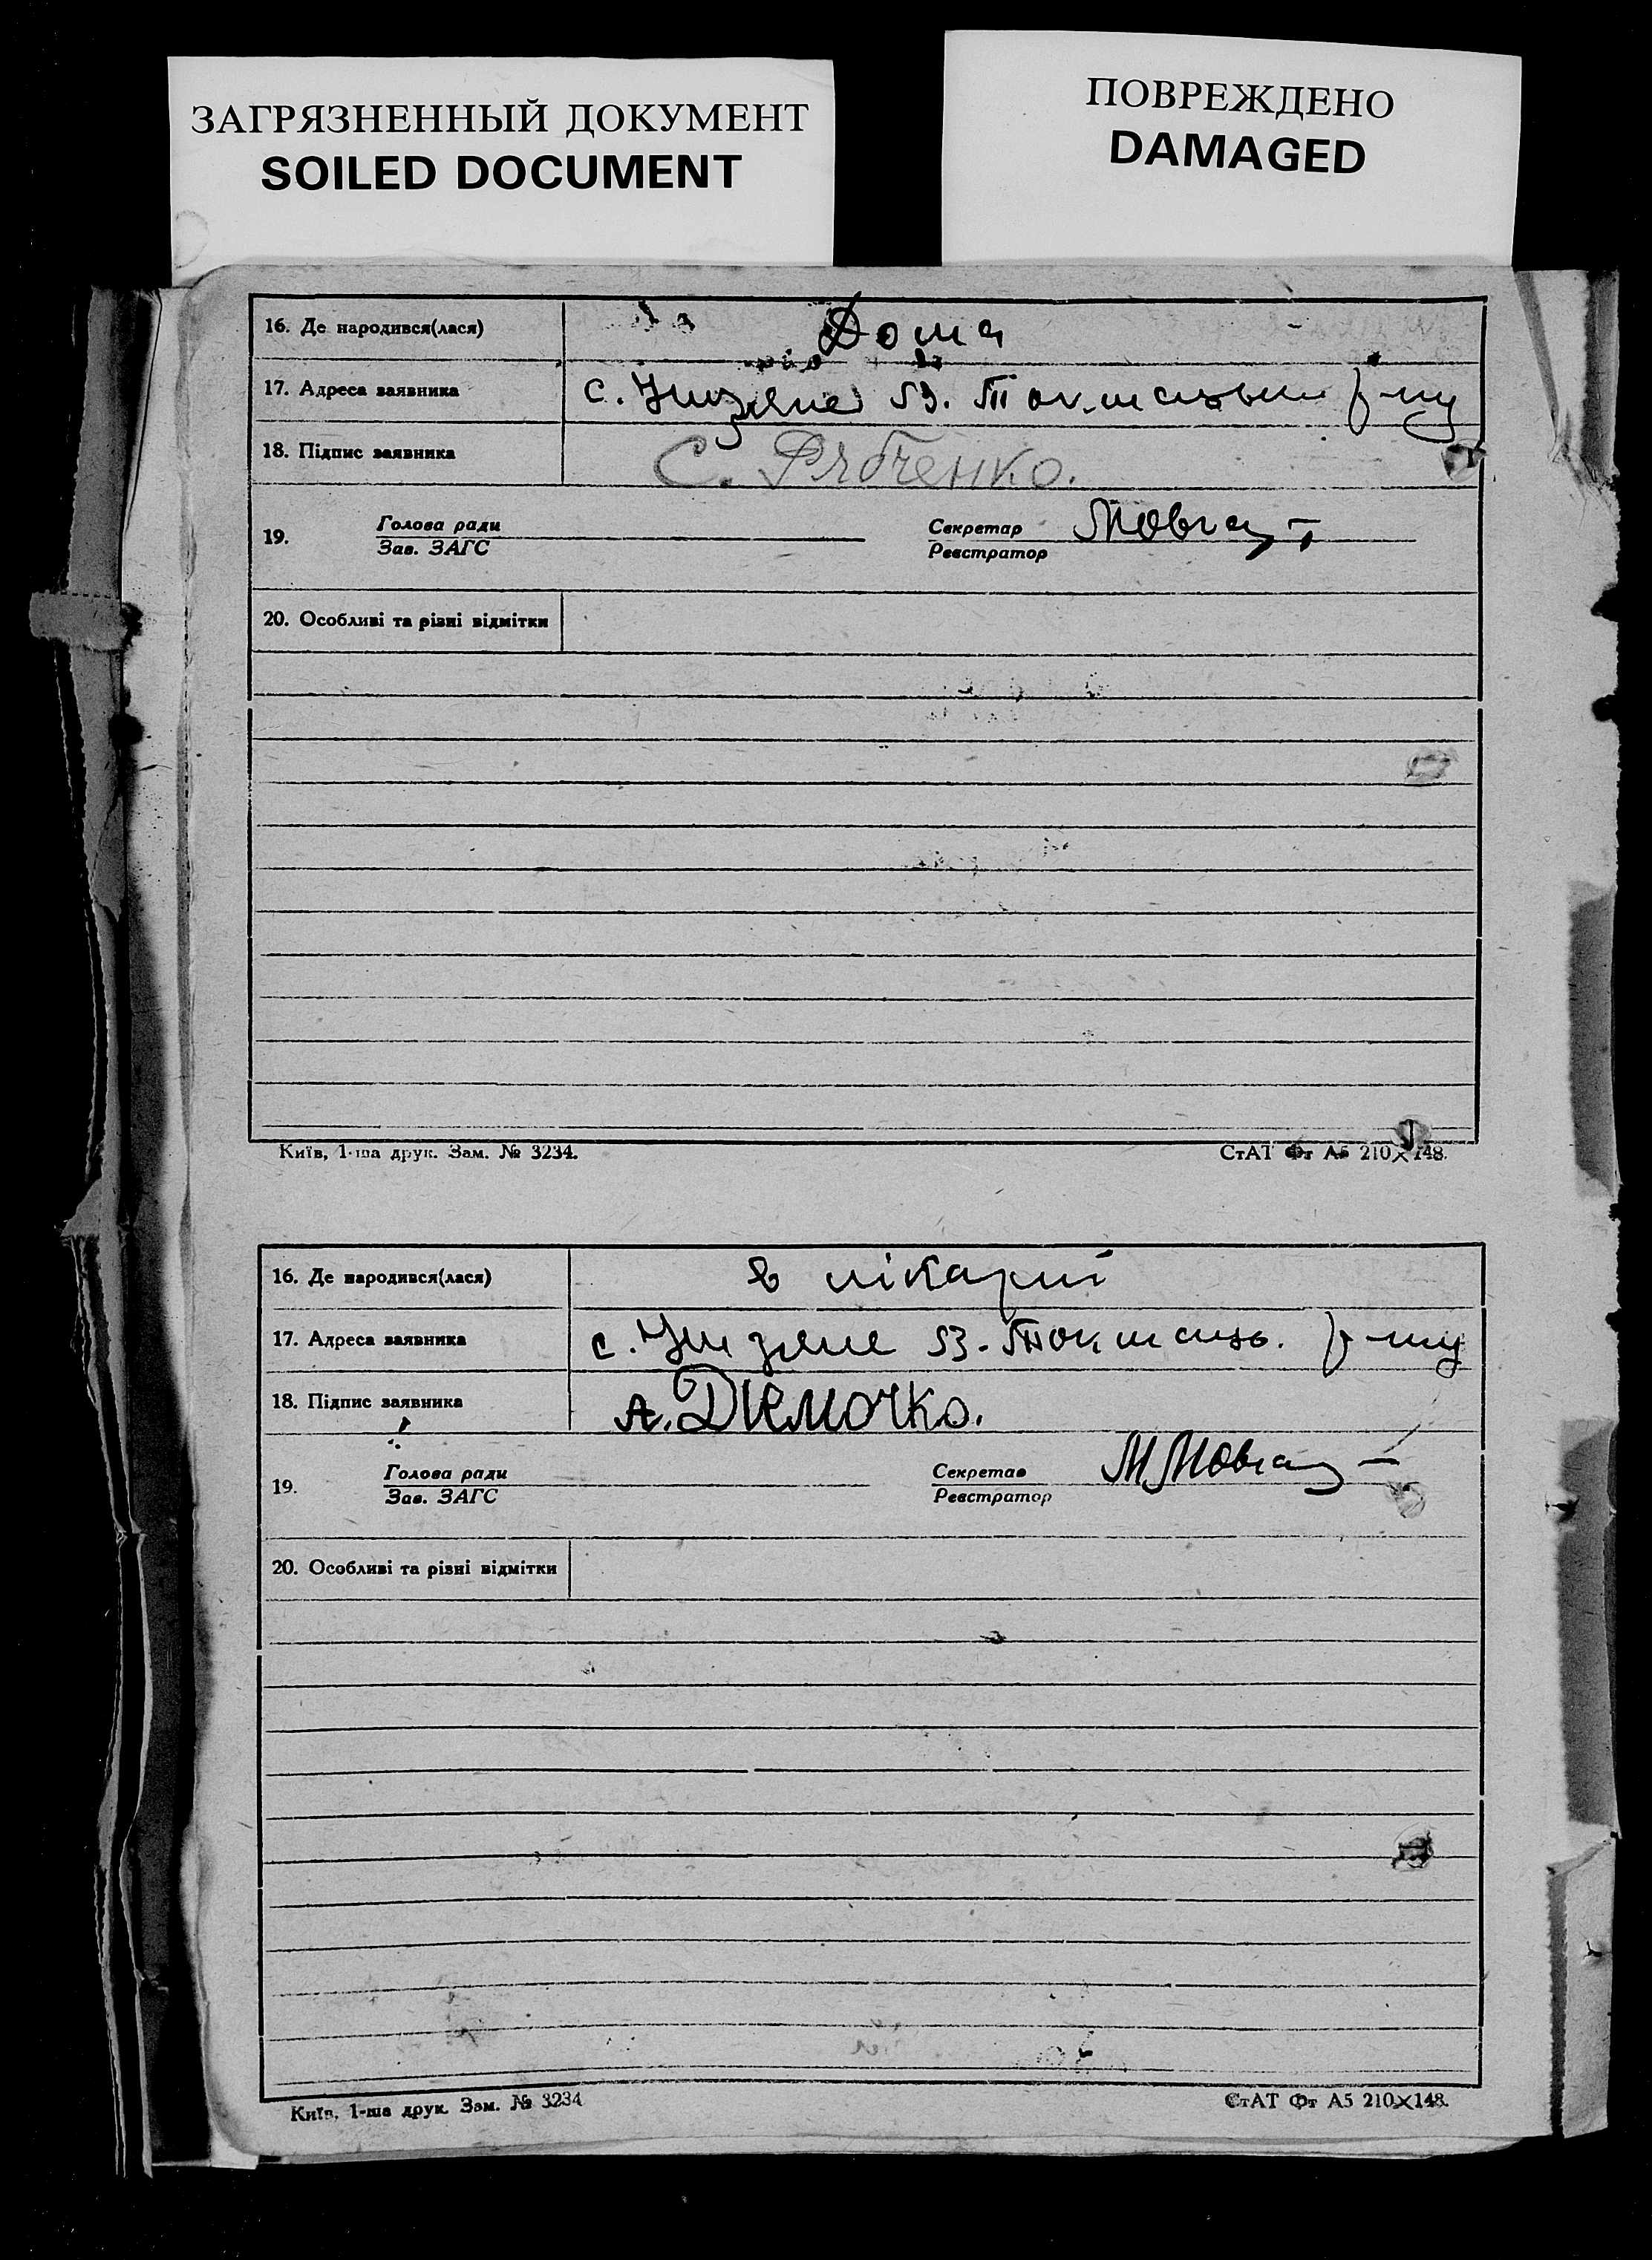 ЗАГРЯЗНЕННЫЙ ДОКУМЕНТ
SOILED DOCUMENT
ПОВРЕЖДЕНО
DAMAGED
16. Де народився(лася) Дома
17. Адреса заявника с. В. Токмацьки р-ну
18. Підпис заявника С. Рябченко.
19. Голова ради Секретар
Зав. ЗАГС Реєстратор
20. Особливі та різні відмітки
Київ, 1-ша друк. Зам. № 3234. СтАТ Фт А5 210×148.
16. Де народився(лася) в лікарні
17. Адреса заявника с. В. Токмаць. р-ну
18. Підпис заявника А. Димочко.
19. Голова ради Секретар
Зав. ЗАГС Реєстратор
20. Особливі та різні відмітки
Київ, 1-ша друк. Зам. № 3234 СтАТ Фт А5 210×148.